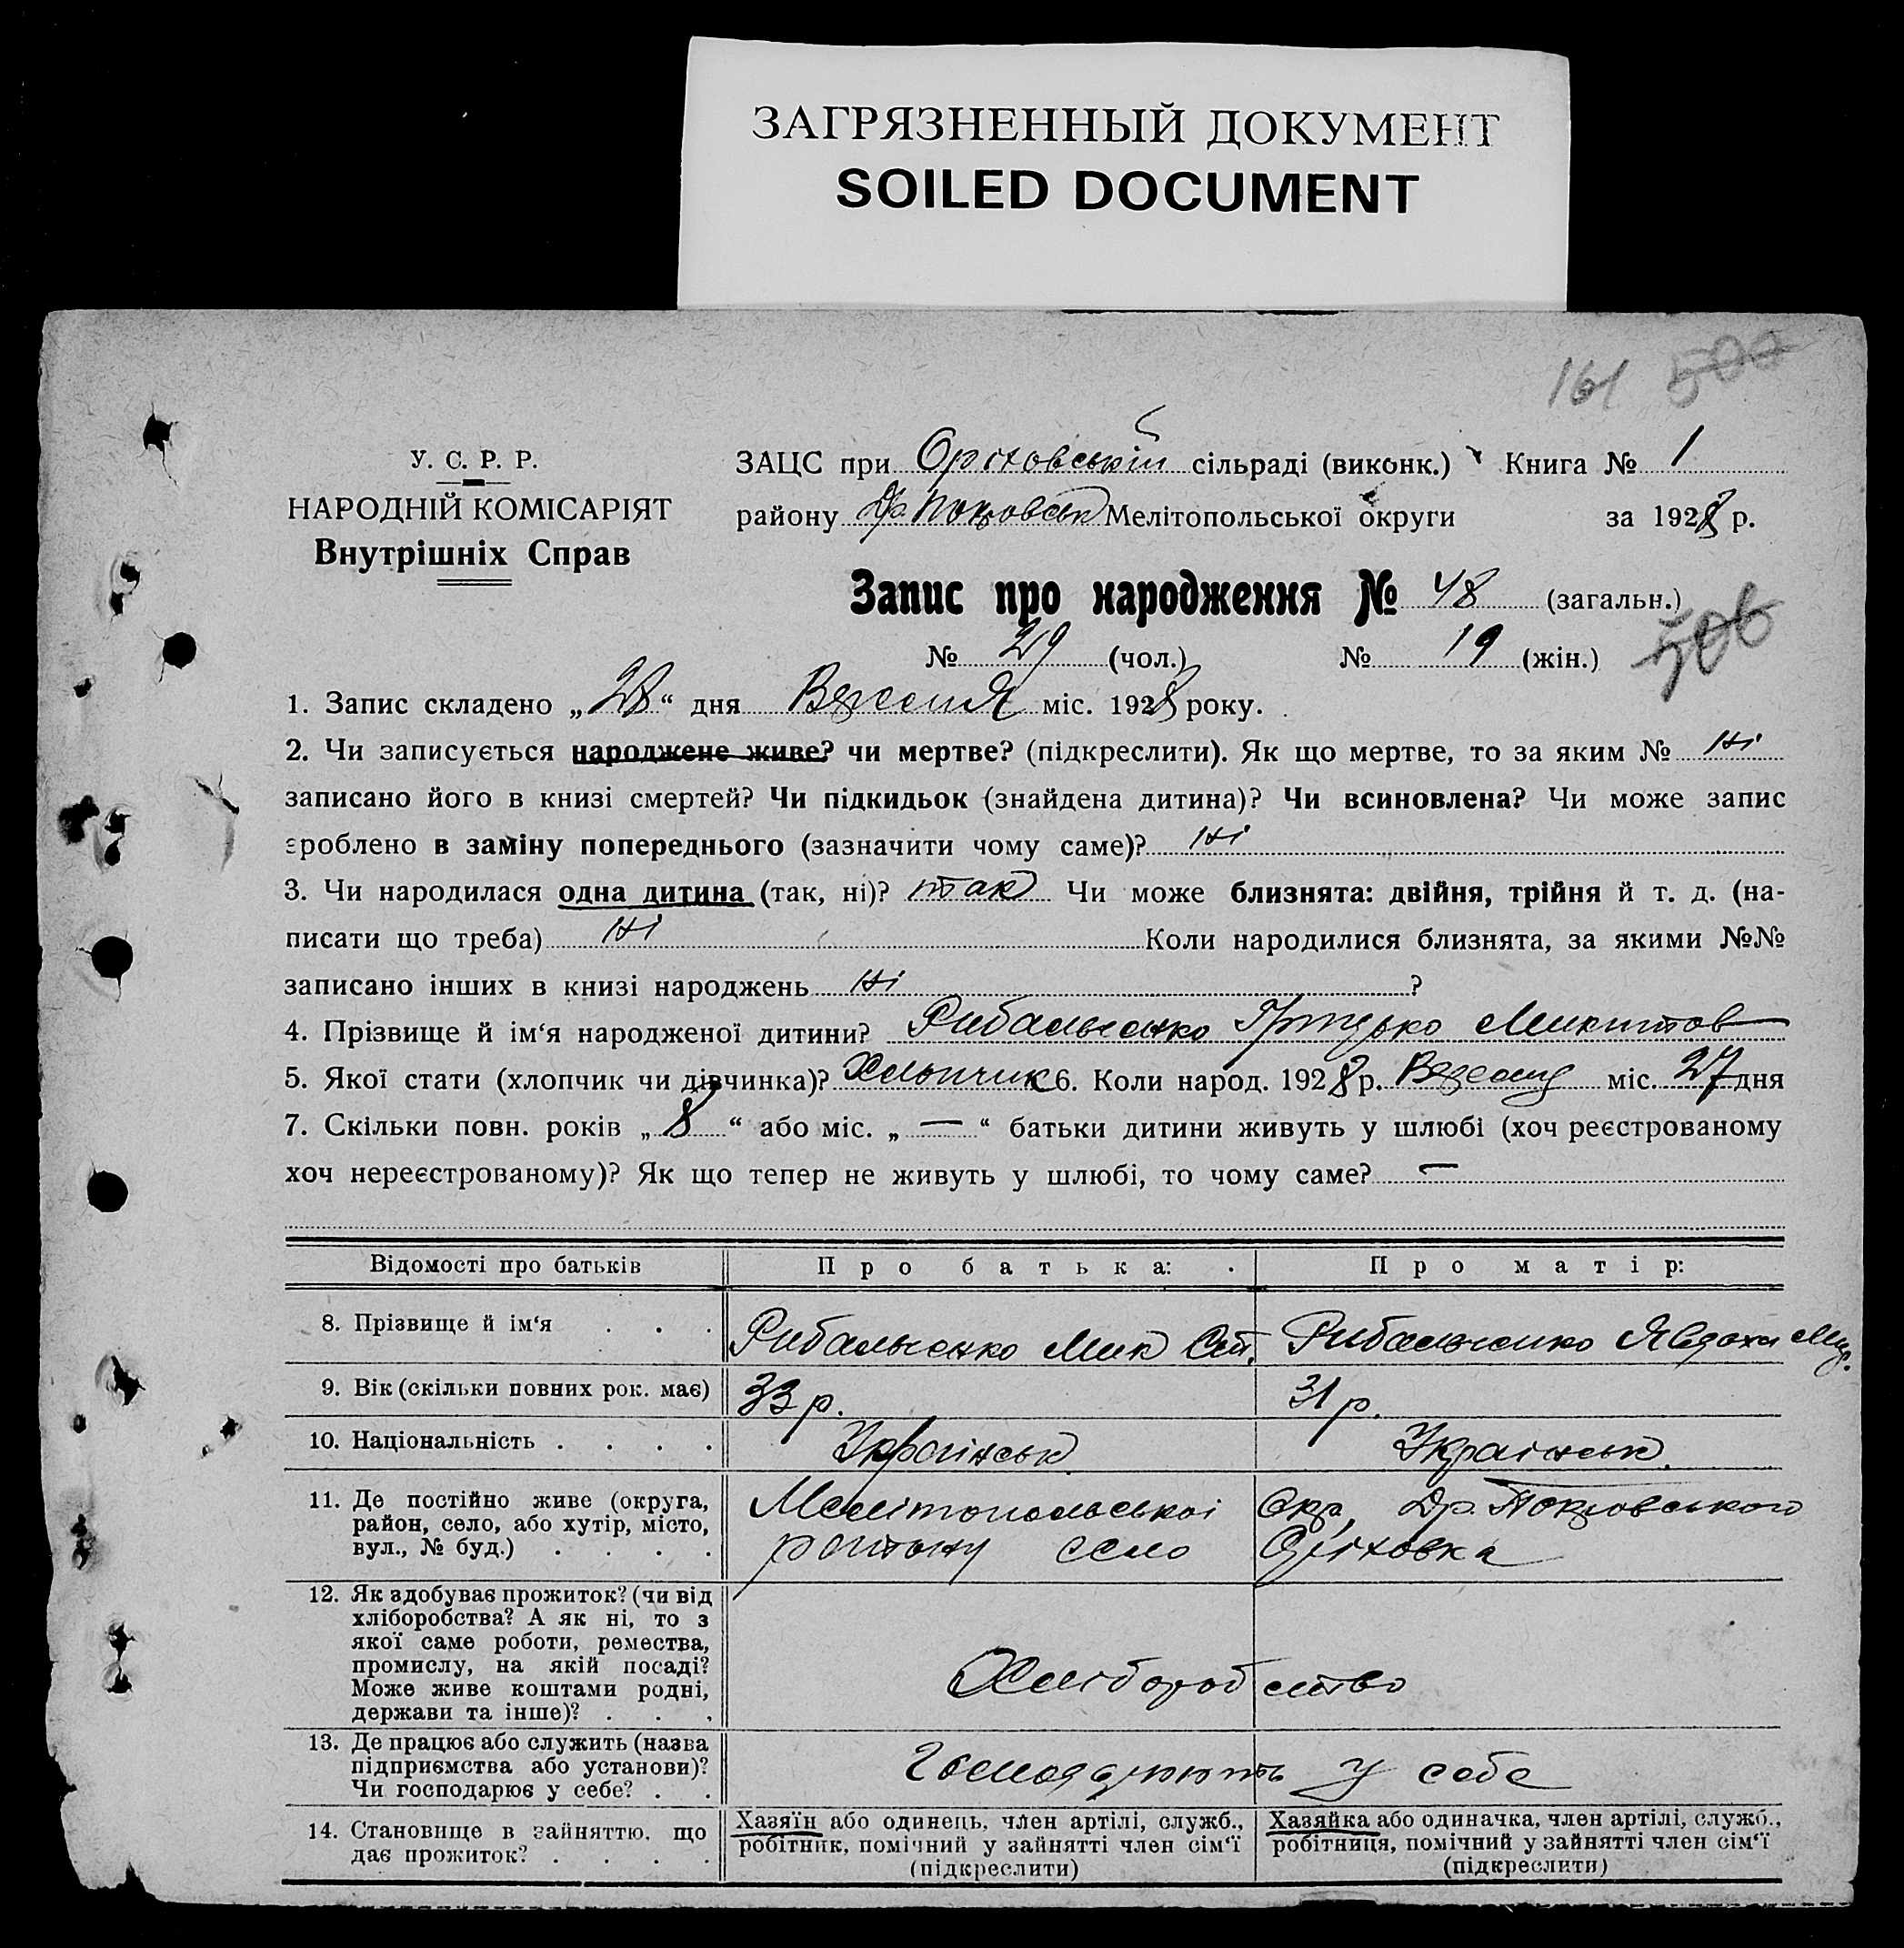 ЗАГРЯЗНЕННЫЙ ДОКУМЕНТ
SOILED DOCUMENT
161 500
У. С. Р. Р.
НАРОДНІЙ КОМІСАРІЯТ
Внутрішніх Справ
ЗАЦС при Оріховській сільраді (виконк.) Книга № 1
району Др. Покровськ Мелітопольської округи за 1928 р.
Запис про народження № 48 (загальн.)
506
№ 29 (чол.) № 19 (жін.)
1. Запис складено „28“ дня Вересня міс. 1928 року.
2. Чи записується народжене живе? чи мертве? (підкреслити). Як що мертве, то за яким № ні
записано його в книзі смертей? Чи підкидьок (знайдена дитина)? Чи всиновлена? Чи може запис
зроблено в заміну попереднього (зазначити чому саме)? ні
3. Чи народилася одна дитина (так, ні)? так Чи може близнята: двійня, трійня й т. д. (на-
писати що треба) ні Коли народилися близнята, за якими №№
записано інших в книзі народжень ні ?
4. Прізвище й ім‘я народженої дитини? Рибальченко Грицько Микитов
5. Якої стати (хлопчик чи дівчинка)? Хлопчик 6. Коли народ. 1928 р. Вересня міс. 27 дня
7. Скільки повн. років „8“ або міс. „—“ батьки дитини живуть у шлюбі (хоч реєстрованому
хоч нереєстрованому)? Як що тепер не живуть у шлюбі, то чому саме? —
Відомості про батьків Про батька: Про матір:
8. Прізвище й ім‘я . . . Рибальченко Мик Ст. Рибальченко Явдоха
9. Вік (скільки повних рок. має) 33 р. 31 р.
10. Національність . . . . Українськ Українськ.
11. Де постійно живе (округа, Мелітопольської Окр. Др. Покровського
район, село, або хутір, місто, району село Оріховка
вул., № буд.) . . . .
12. Як здобуває прожиток? (чи від
хліборобства? А як ні, то з
якої саме роботи, ремества,
промислу, на якій посаді?
Може живе коштами родні, Хліборобство
держави та інше)? . . .
13. Де працює або служить (назва
підприємства або установи)? Господарюють у себе
Чи господарює у себе? . .
14. Становище в зайняттю, що
дає прожиток? . . . .
Хазяїн або одинець, член артілі, служб.,
робітник, помічний у зайнятті член сім‘ї
(підкреслити)
Хазяйка або одиначка, член артілі, служб.,
робітниця, помічний у зайнятті член сім‘ї
(підкреслити)